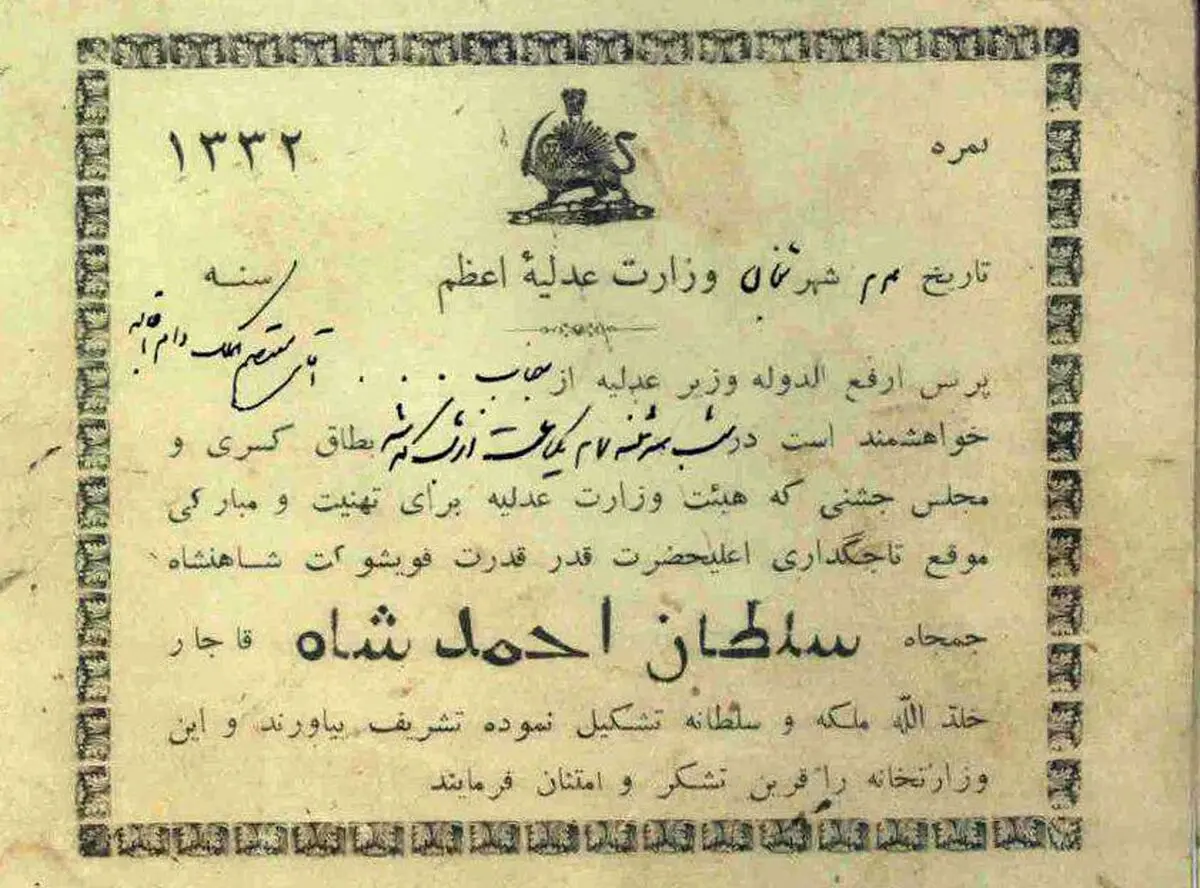 نمره
۱۳۳۲
تاریخ شهر شعبان وزارت عدلیهٔ اعظم سنه
پرنس ارفع الدوله وزیر عدلیه از جناب آقای معتصم الملک دام اقباله
خواهشمند است در شب سه شنبه یکساعت از شب گذشته بطاق کسری و
مجلس جشنی که هیئت وزارت عدلیه برای تهنیت و مبارکی
موقع تاجگذاری اعلیحضرت قدر قدرت قویشوکت شاهنشاه
جمجاه سلطان احمد شاه قاجار
خلد الله ملکه و سلطانه تشکیل نموده تشریف بیاورند و این
وزارتخانه را قرین تشکر و امتنان فرمایند